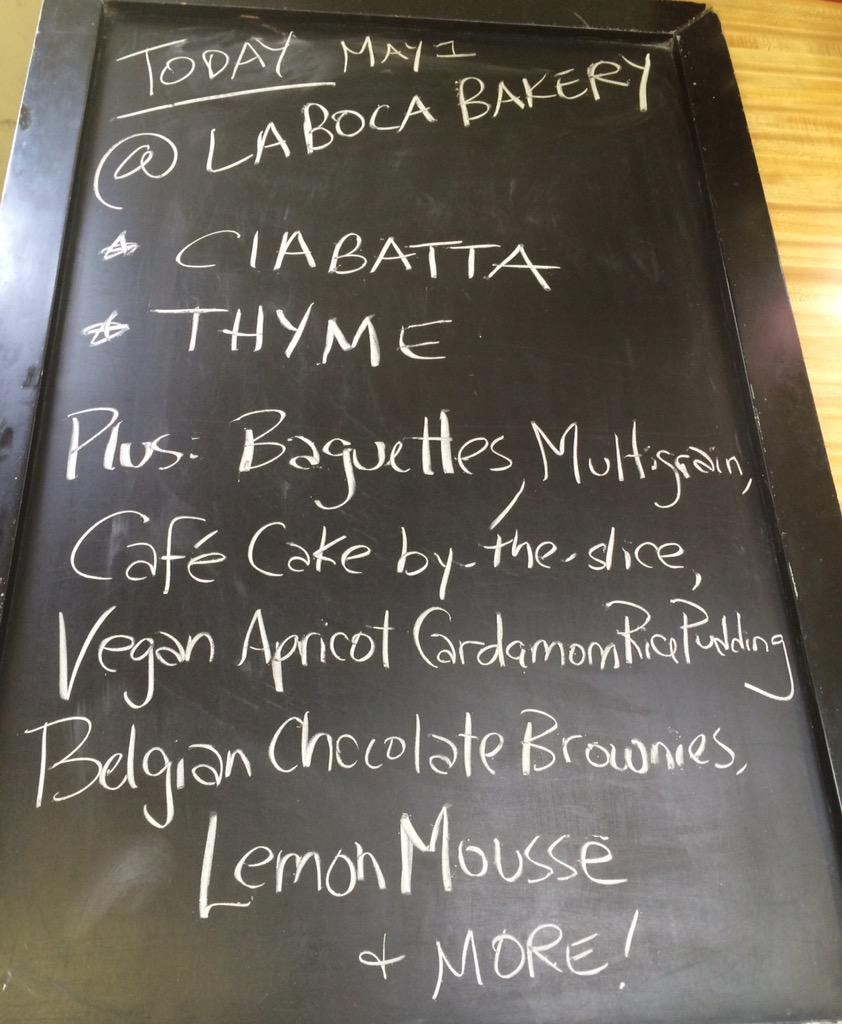 TODAY MAY 1
@ LA BOCA BAKERY
* CIABATTA
* THYME
Plus: Baguettes, Multigrain,
Café Cake by-the-slice,
Vegan Apricot Cardamom Rice Pudding
Belgian Chocolate Brownies,
Lemon Mousse
+ MORE!